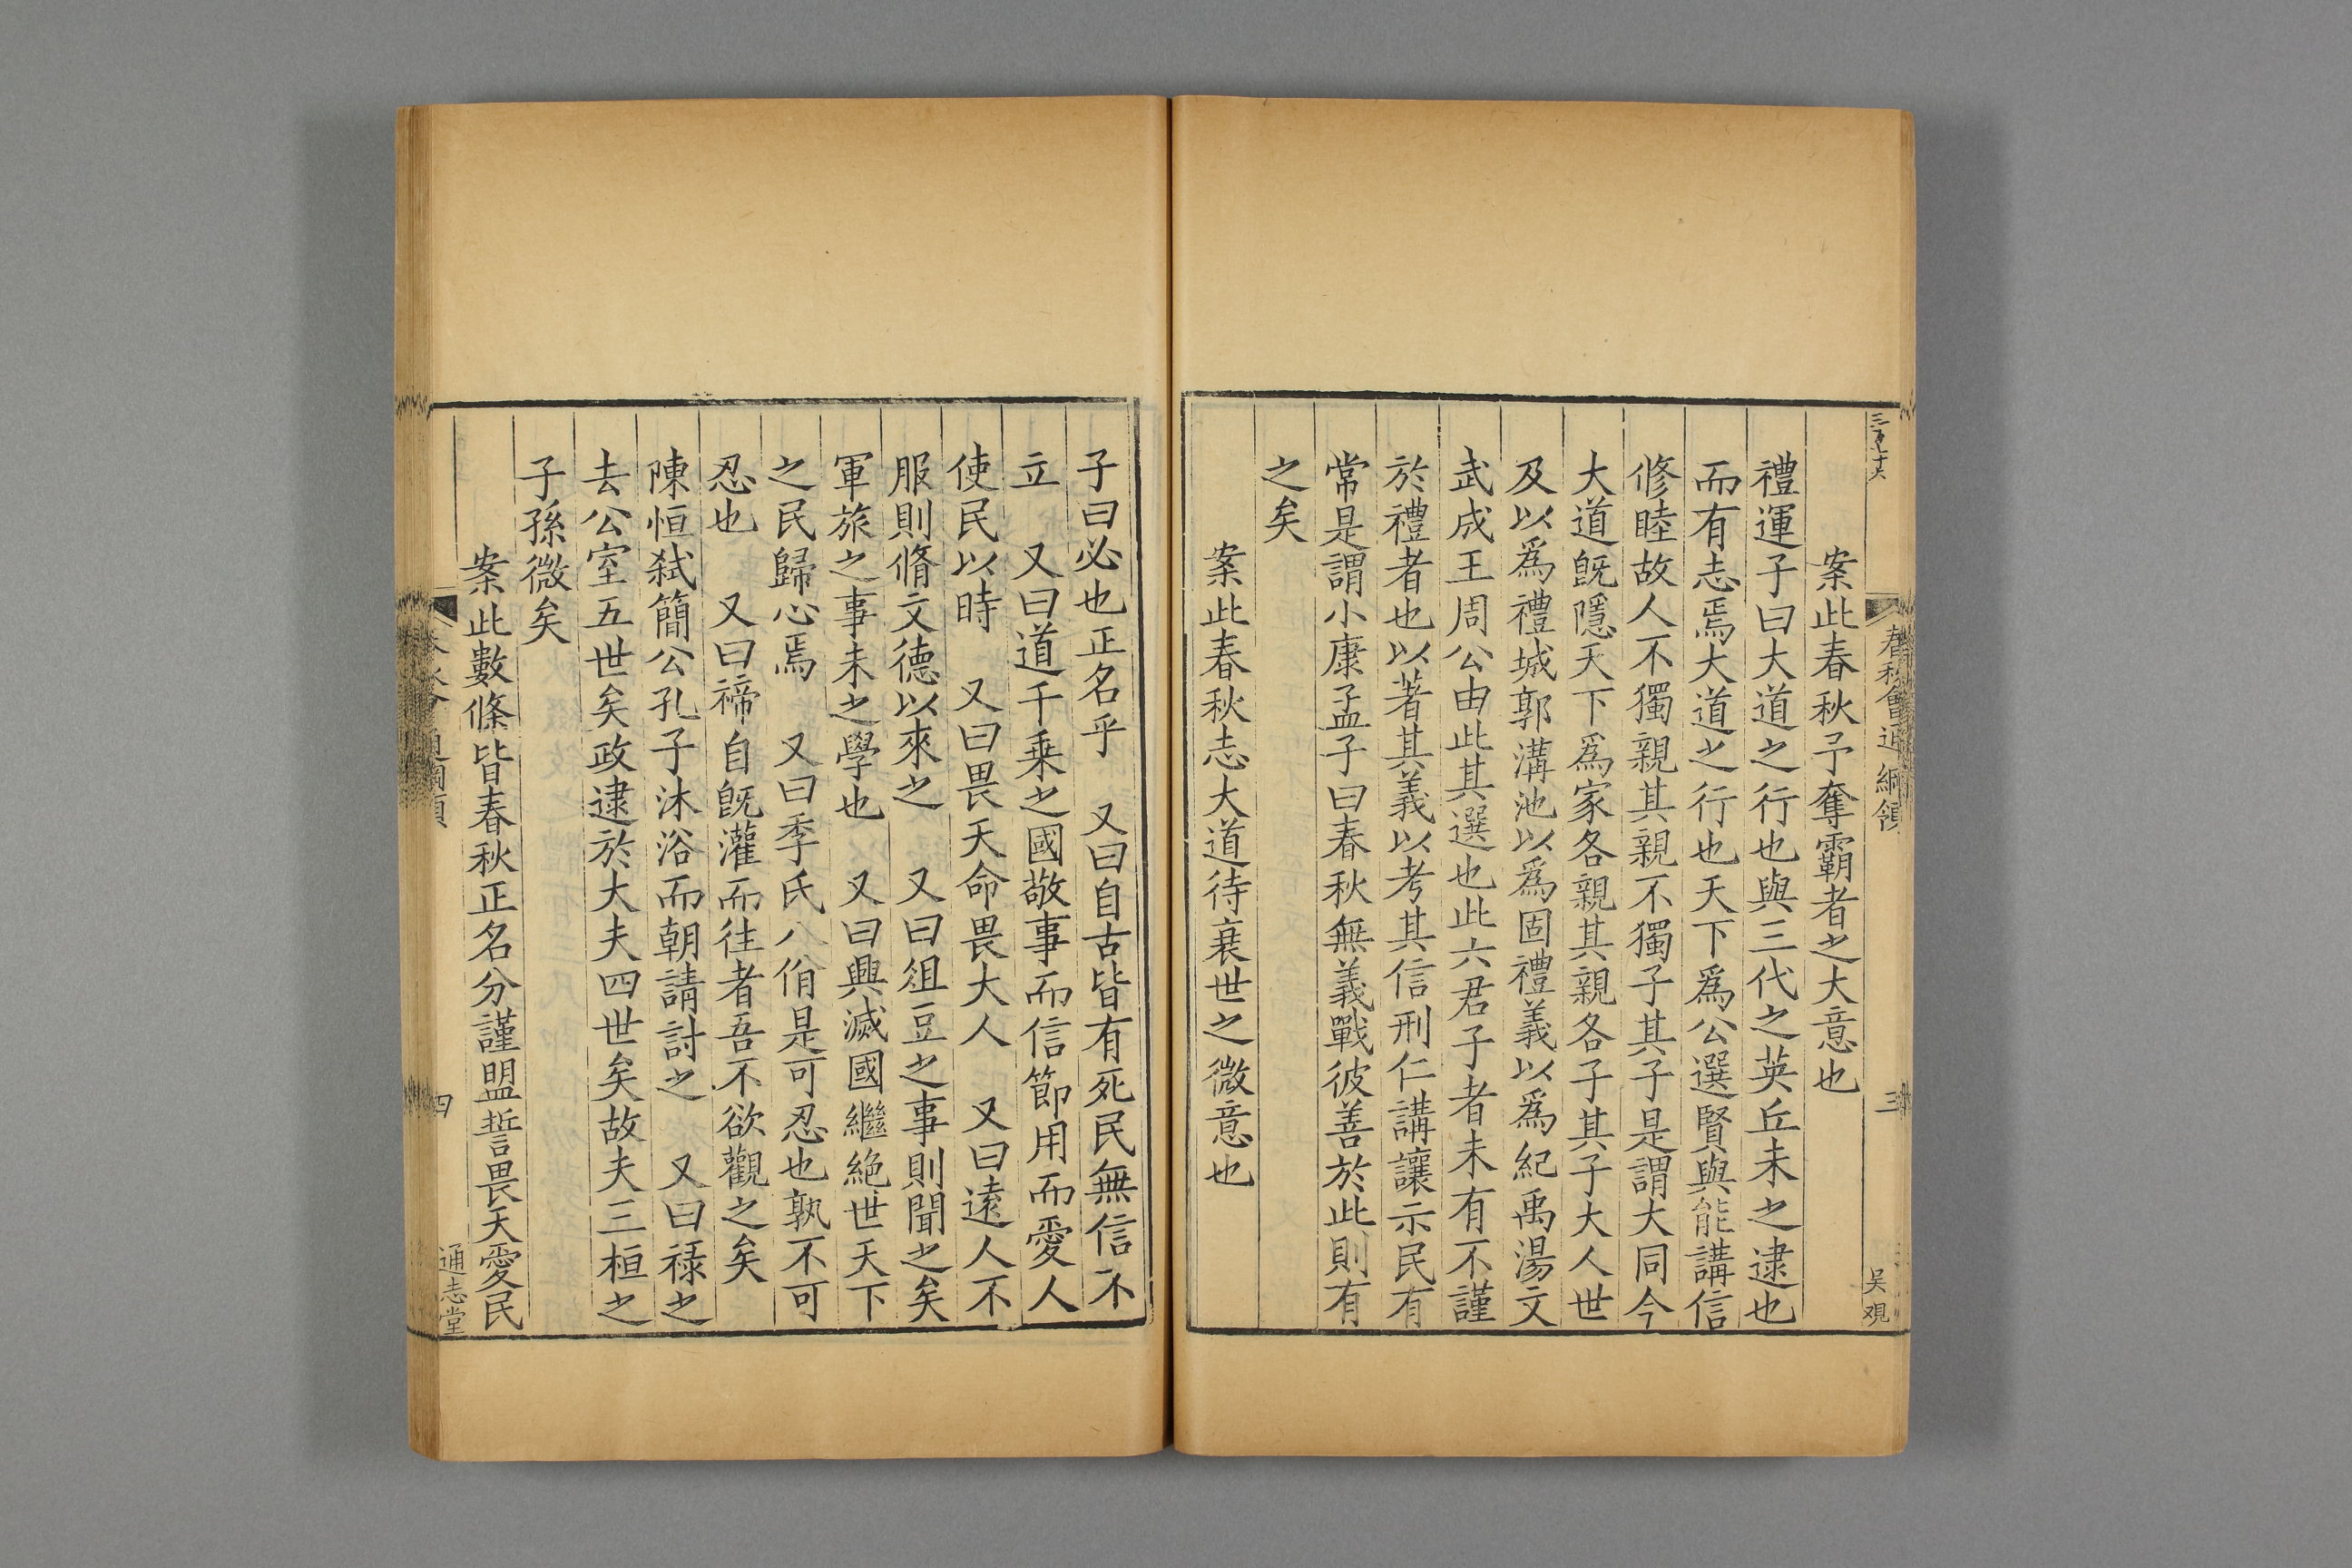 三百七十六
春秋會通綱領
三
吳觀
案此春秋予奪霸者之大意也
禮運子曰大道之行也與三代之英丘未之逮也
而有志焉大道之行也天下爲公選賢與能講信
修睦故人不獨親其親不獨子其子是謂大同今
大道旣隱天下爲家各親其親各子其子大人世
及以爲禮城郭溝池以爲固禮義以爲紀禹湯文
武成王周公由此其選也此六君子者未有不謹
於禮者也以著其義以考其信刑仁講讓示民有
常是謂小康孟子曰春秋無義戰彼善於此則有
之矣
案此春秋志大道待衰世之微意也
子曰必也正名乎 又曰自古皆有死民無信不
立 又曰道千乗之國敬事而信節用而愛人
使民以時 又曰畏天命畏大人 又曰遠人不
服則脩文德以來之 又曰俎豆之事則聞之矣
軍旅之事未之學也 又曰興滅國繼絶世天下
之民歸心焉 又曰季氏八佾是可忍也孰不可
忍也 又曰禘自旣灌而往者吾不欲觀之矣
陳恒弑簡公孔子沐浴而朝請討之 又曰禄之
去公室五世矣政逮於大夫四世矣故夫三桓之
子孫微矣
案此數條皆春秋正名分謹盟誓畏天愛民
四
通志堂